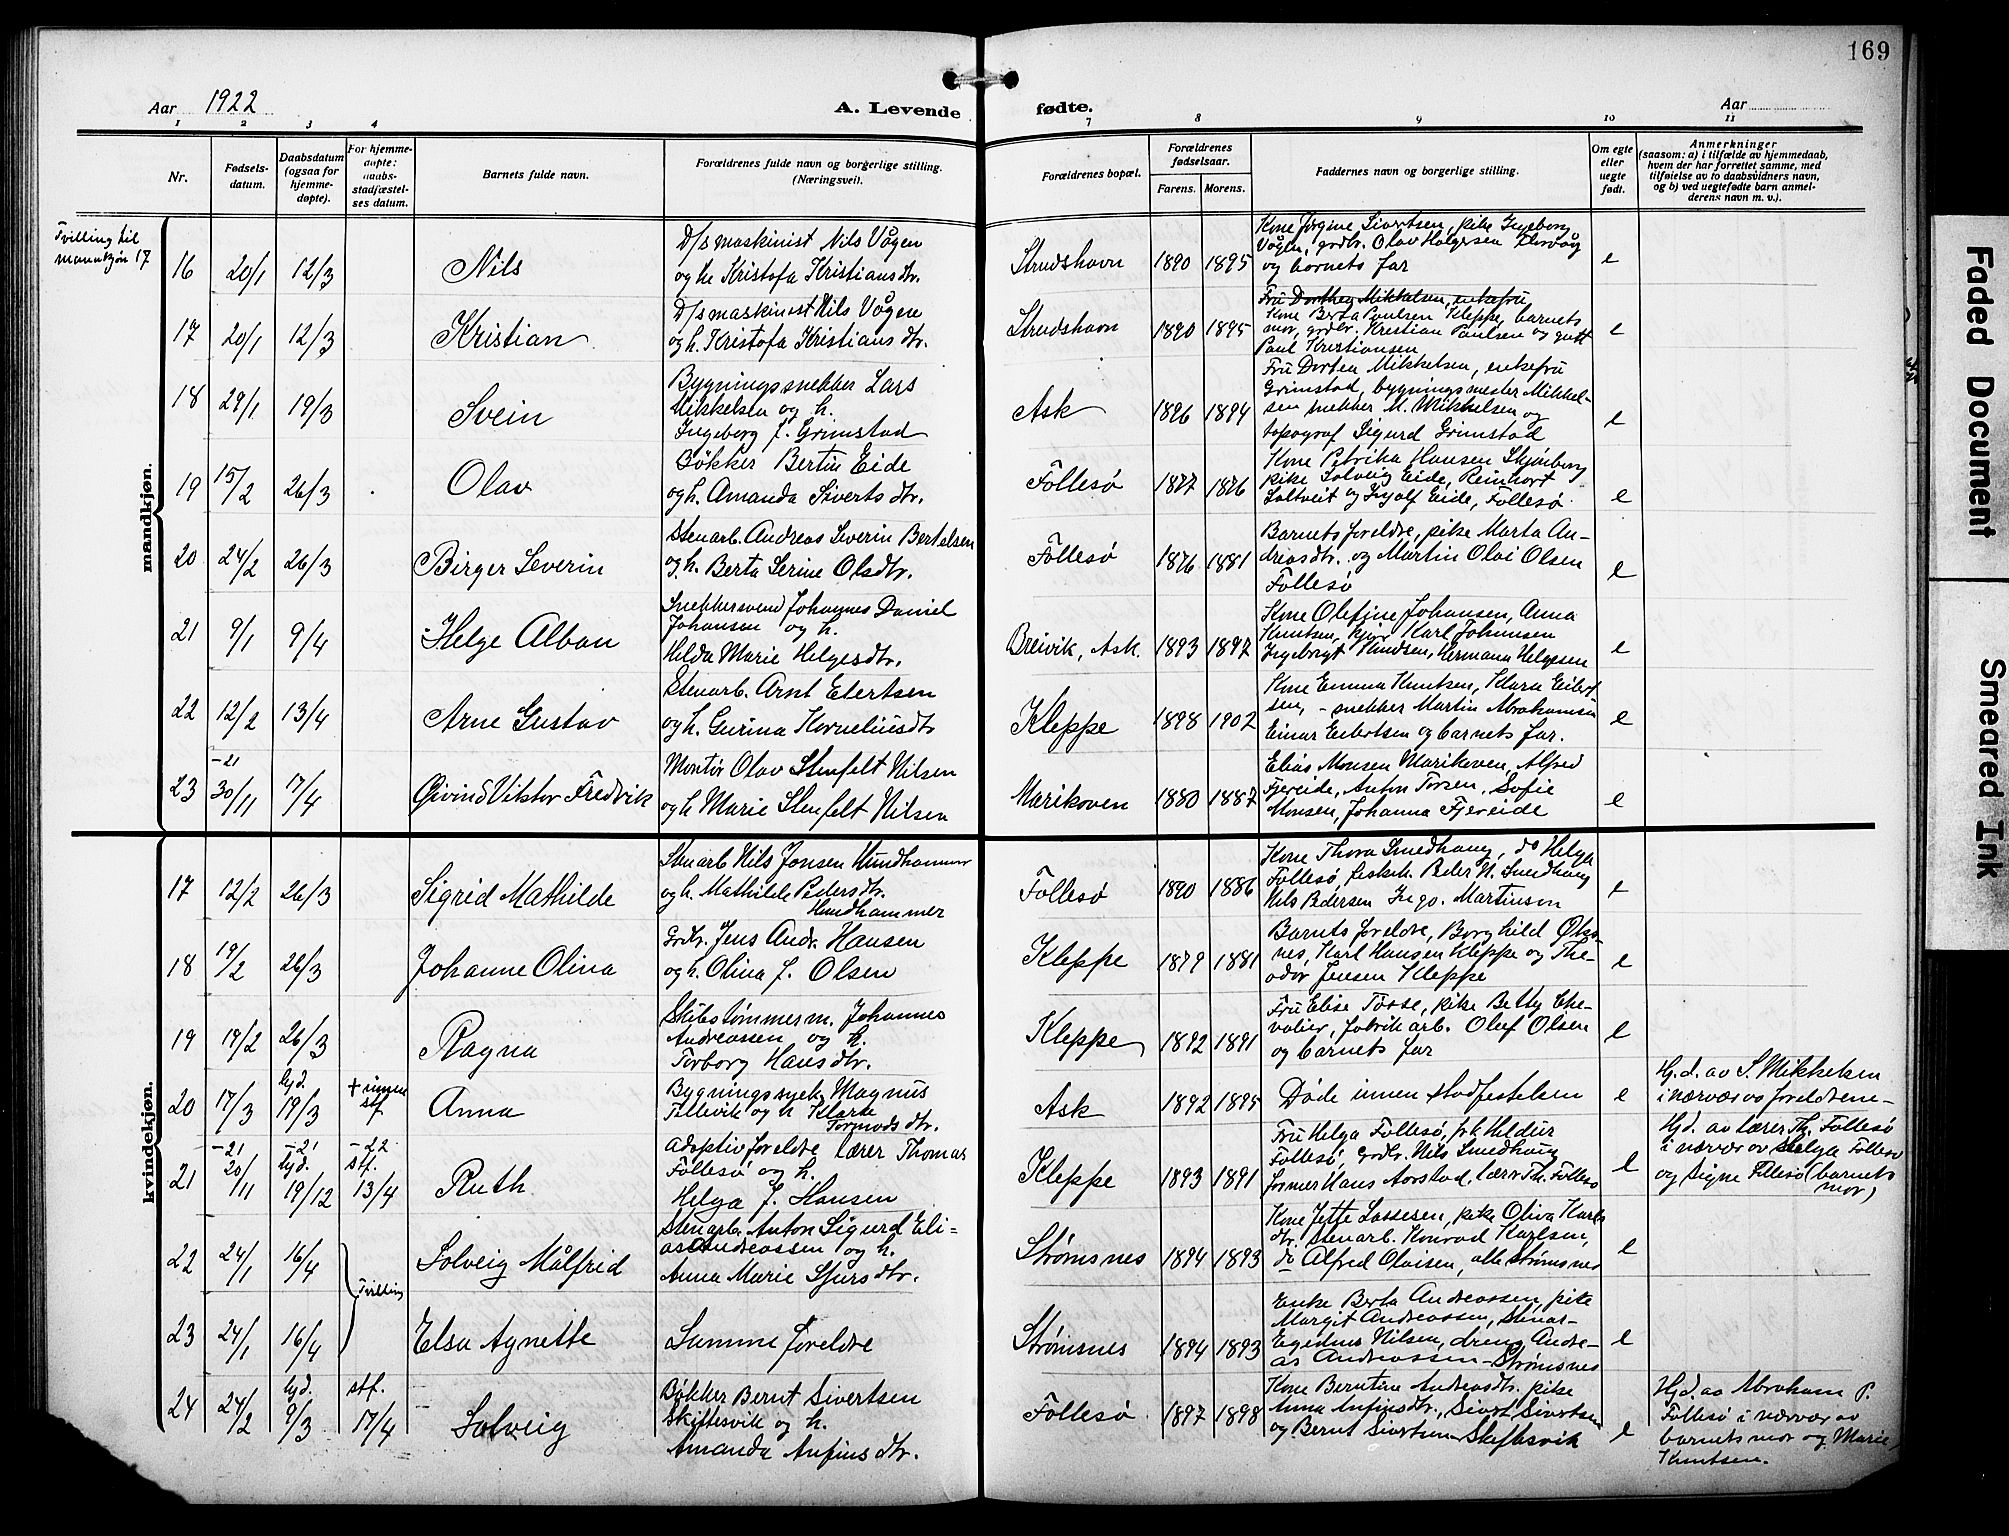 169
Aar 1922
A. Levende fødte.
Aar
1 2 3 4 7 8 9 10 11
Nr.
Fødsels-
datum.
Daabsdatum
(ogsaa for
hjemme-
døpte).
For hjemme-
døpte:
daabs-
stadfæstel-
ses datum.
Barnets fulde navn.
Forældrenes fulde navn og borgerlige stilling.
(Næringsvei).
Forældrenes bopæl.
Forældrenes
fødselsaar.
Farens. Morens.
Faddernes navn og borgerlige stilling.
Om egte
eller
uegte
født.
Anmerkninger
(saasom: a) i tilfælde av hjemmedaab,
hvem der har forrettet samme, med
tilføielse av to daabsvidners navn,
og b) ved uegtefødte barn anmel-
derens navn m. v.).
mandkjøn.
Tvilling til
mannkjøn 17
16 20/1 12/3 Nils
D/s maskinist Nils Vågen
og h. Kristofa Kristiansdtr.
Strudshavn 1890 1895
Kone Jørgine Sivertsen, pike Ingeborg
Vågen, grdbr. Olav Holgersen
og barnets far
e
17 20/1 12/3 Kristian
D/s maskinist Nils Vågen
og h. Kristofa Kristiansdtr.
Strudshavn 1890 1895
Fru Dorthea Mikkelsen, enkefru
Kone Berta Paulsen Kleppe, barnets
mor, grdbr. Kristian Paulsen og gutt
Paul Kristiansen
e
18 29/1 19/3 Svein
Bygningssnekker Lars
Mikkelsen og h.
Ingeborg f. Grimstad
Ask 1896 1894
Fru Dortea Mikkelsen, enkefru
Grimstad, bygningsmester Mikkel-
sen snekker M. Mikkelsen og
topograf Sigurd Grimstad
e
19 15/2 26/3 Olav
Bøkker Bertin Eide
og h. Amanda Sivertsdtr.
Follesø 1877 1876
Kone Petrika Hansen Skjønberg
pike Solveig Eide, Reinhart
Soltveit og Ingolf Eide, Follesø.
e
20 24/2 26/3 Birger Severin
Stenarb. Andreas Severin Bertelsen
og h. Berta Serine Olsdtr.
Follesø 1876 1881
Barnets foreldre, pike Marta An-
dreasdtr. og Martin Olai Olsen
Follesø
e
21 9/1 9/4 Helge Alban
Snekkersvend Johannes Daniel
Johansen og h.
Helda Marie Helgesdtr.
Breivik, Ask. 1893 1897
Kone Olefine Johansen, Anna
Knutsen, Karl Johansen
Ingebrigt Knudsen, Hermann Helgesen
e
22 12/2 13/4 Arne Gustav
Stenarb. Arnt Eilertsen
og h. Gurina Korneliusdtr
Kleppe 1898 1902
Kone Emma Knutsen, Klara Eilert-
sen, - snekker Martin Abrahamsen
Einar Eilertsen og barnets far.
e
23 -21 30/11 17/4 Øivind Viktor Fredrik
Montør Olav Stenfelt Nilsen
og h. Marie Stenfelt Nilsen
Marikoven 1880 1887
Elias Monsen Marikoven, Alfred
Fjereide, Anton Torsen, Sofie
Monsen, Johanna Fjereide
e
kvindekjøn.
17 12/2 26/3 Sigrid Mathilde
Stenarb Nils Jonsen Hundhammer
og h. Mathilde Pedersdtr.
Hundhammer
Follesø 1890 1886
Kone Thora Smedhaug, do Helga
Follesø, fiskeh. Peder N. Smedhaug
Nils Pedersen Ingv. Martinson
e
18 19/2 26/3 Johanne Olina
Grdbr. Jens Andr. Hansen
og h. Olina f. Olsen
Kleppe 1879 1881
Barnets foreldre, Borghild Øks-
nes, Karl Hansen Kleppe og The-
odor Jensen Kleppe
e
19 19/2 26/3 Ragna
Skibstømmerm. Johannes
Andreassen og h.
Torborg Hansdtr.
Kleppe 1892 1891
Fru Elise Tosse, pike Betty Che-
valier, fabrikarb. Oluf Olsen
og barnets far
e
20 17/3 hjd. 19/3 + innen stf Anna
Bygningssnek. Magnus
Tellevik og h Klara
Tormodsdtr.
Ask 1892 1895
Døde innen stadfestelsen
e
Hj.d. av S. Mikkelsen
i nærvær av foreldrene-
21 -21 20/11 -21 hjd. 19/12 -22 stf. 13/4 Ruth
Adoptivforeldre lærer Thomas
Follesø og h.
Helga f. Hansen
Kleppe 1893 1891
Fru Helga Follesø, frk Heldur
Follesø, grdbr. Nils Smedhaug
former Hans Aarstad, lærer Th. Follesø
e
Hjd. av lærer Th. Follesø
i nærvær av Helga Follesø
og Signe Follesø (barnets
mor)
22 24/1 16/4 Tvilling Solveig Målfrid
Stenarb. Anton Sigurd Eli-
as Andreassen og h.
Anna Marie Sjursdtr.
Strømsnes 1894 1893
Kone Jette Lassesen, pike Oliva Karls-
dtr. stenarb. Konrad Karlsen,
do Alfred Olaisen, alle Strømsnes
e
23 24/1 16/4 Elsa Agnette
Samme foreldre
Strømsnes 1894 1893
Enke Berta Andreassen, pike
Margit Andreassen, stenar-
Egidius Nilsen, dreng Andre-
as Andreassen - Strømsnes
e
24 24/2 hjd. 9/3 stf. 17/4 Solveig
Bøkker Bernt Sivertsen
Skiftesvik og h.
Amanda Anfinsdtr.
Follesø 1897 1898
Kone Berntine Andreasdtr. pike
Anna Anfinsdtr., Sivert Sivertsen
og Bernt Sivertsen Skiftesvik
e
Hjd. av Abraham P.
Follesø i nærvær av
barnets mor og Marie
Knutsen.
Faded Document
Smeared Ink